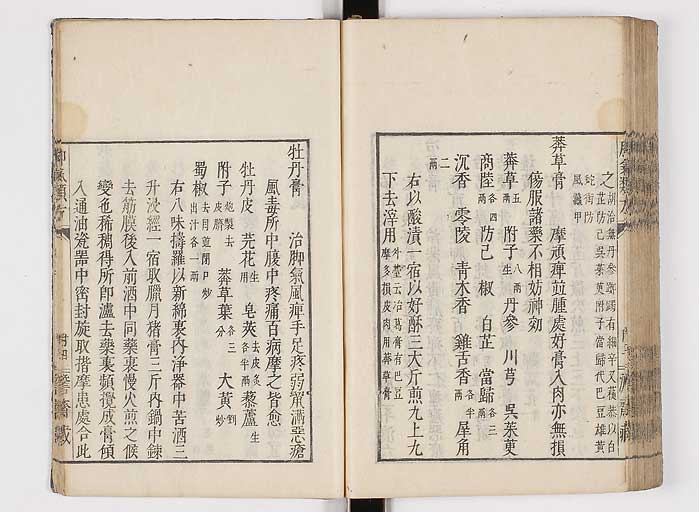 之胡治無丹參躑躅有細辛又茯苓以白
芷防己吳茱萸附子當歸代巴豆雄黃
蛇銜防
風鱉甲
莽草膏 摩頑痺並腫處好膏入肉亦無損
傷服諸藥不相妨神効
莽草五兩 附子生 丹參 川芎 吳茱萸
商陸各四兩 防己 椒 白芷 當歸各三兩
沉香 零陵 青木香 雞舌香各半兩 犀角
二兩
右以酸漬一宿以好酥三大斤煎九上九
下去滓用外臺云治葛膏有巴豆
摩多損皮肉用莽草膏
牡丹膏 治脚氣風痺手足疼弱鬢滿惡瘡
風毒所中腹中疼痛百病摩之皆愈
牡丹皮 芫花生用 皂莢去皮炙各半兩 藜蘆生
附子炮製去皮臍 莽草葉各三分 大黃剉炒
蜀椒去目並閉口炒出汁各一兩
右八味擣羅以新綿裹內淨器中苦酒三
升浸經一宿取臘月猪膏三斤內鍋中鍊
去筋膜後入前酒中同藥裹慢火煎之候
變色稀稠得所即濾去藥裹頻攪成膏傾
入通油瓷器中密封旋取揩摩患處合此